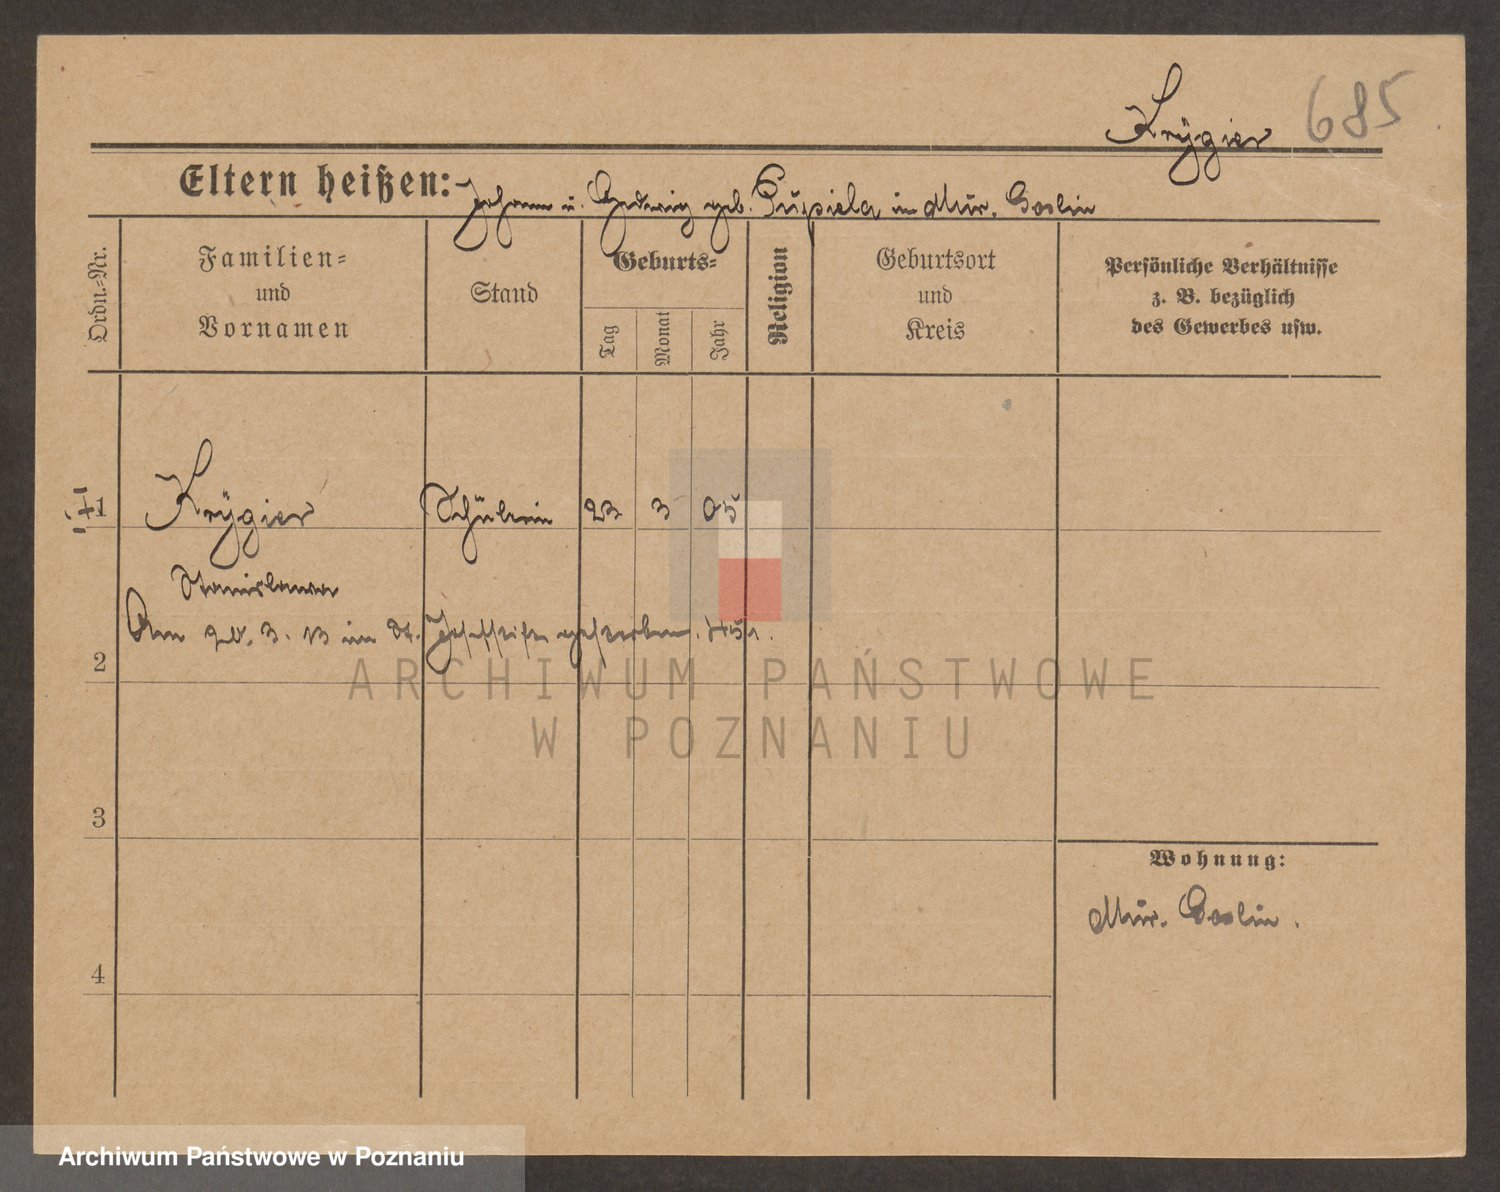 Krÿgier 685
Eltern heißen: Johann u. Hedwig geb. Pupiela in Mur. Goslin
Ordn.-Nr.
Familien-
und
Vornamen
Stand
Geburts-
Tag
Monat
Jahr
Religion
Geburtsort
und
Kreis
Persönliche Verhältnisse
z. B. bezüglich
des Gewerbes usw.
1 Krÿgier Schülerin 23 3 05
Stanislawa
Am 3. 13 im St. Josefstift gestorben.
2
3
4
Wohnung:
Mur. Goslin.
ARCHIWUM PAŃSTWOWE
W POZNANIU
Archiwum Państwowe w Poznaniu